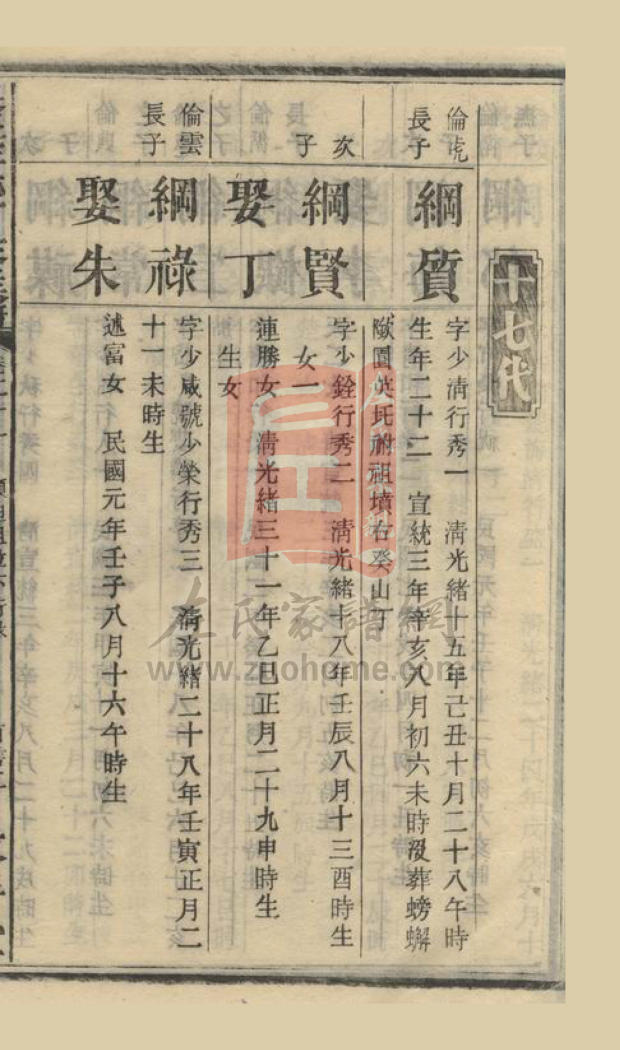 十七代
倫虎
長子
綱質
字少清行秀一 清光緒十五年己丑十月二十八午時
生年二十二 宣統三年辛亥八月初六未時沒葬螃蠏
墩園英圫祔祖墳右癸山丁
次
子
綱賢
字少銓行秀二 清光緒十八年壬辰八月十三酉時生
女一
娶丁
連勝女 清光緒三十一年乙巳正月二十九申時生
生女
倫雲
長子
綱祿
字少咸號少榮行秀三 清光緒二十八年壬寅正月二
十一未時生
娶朱
述富女 民國元年壬子八月十六午時生
左氏家譜網
www.zuohome.com